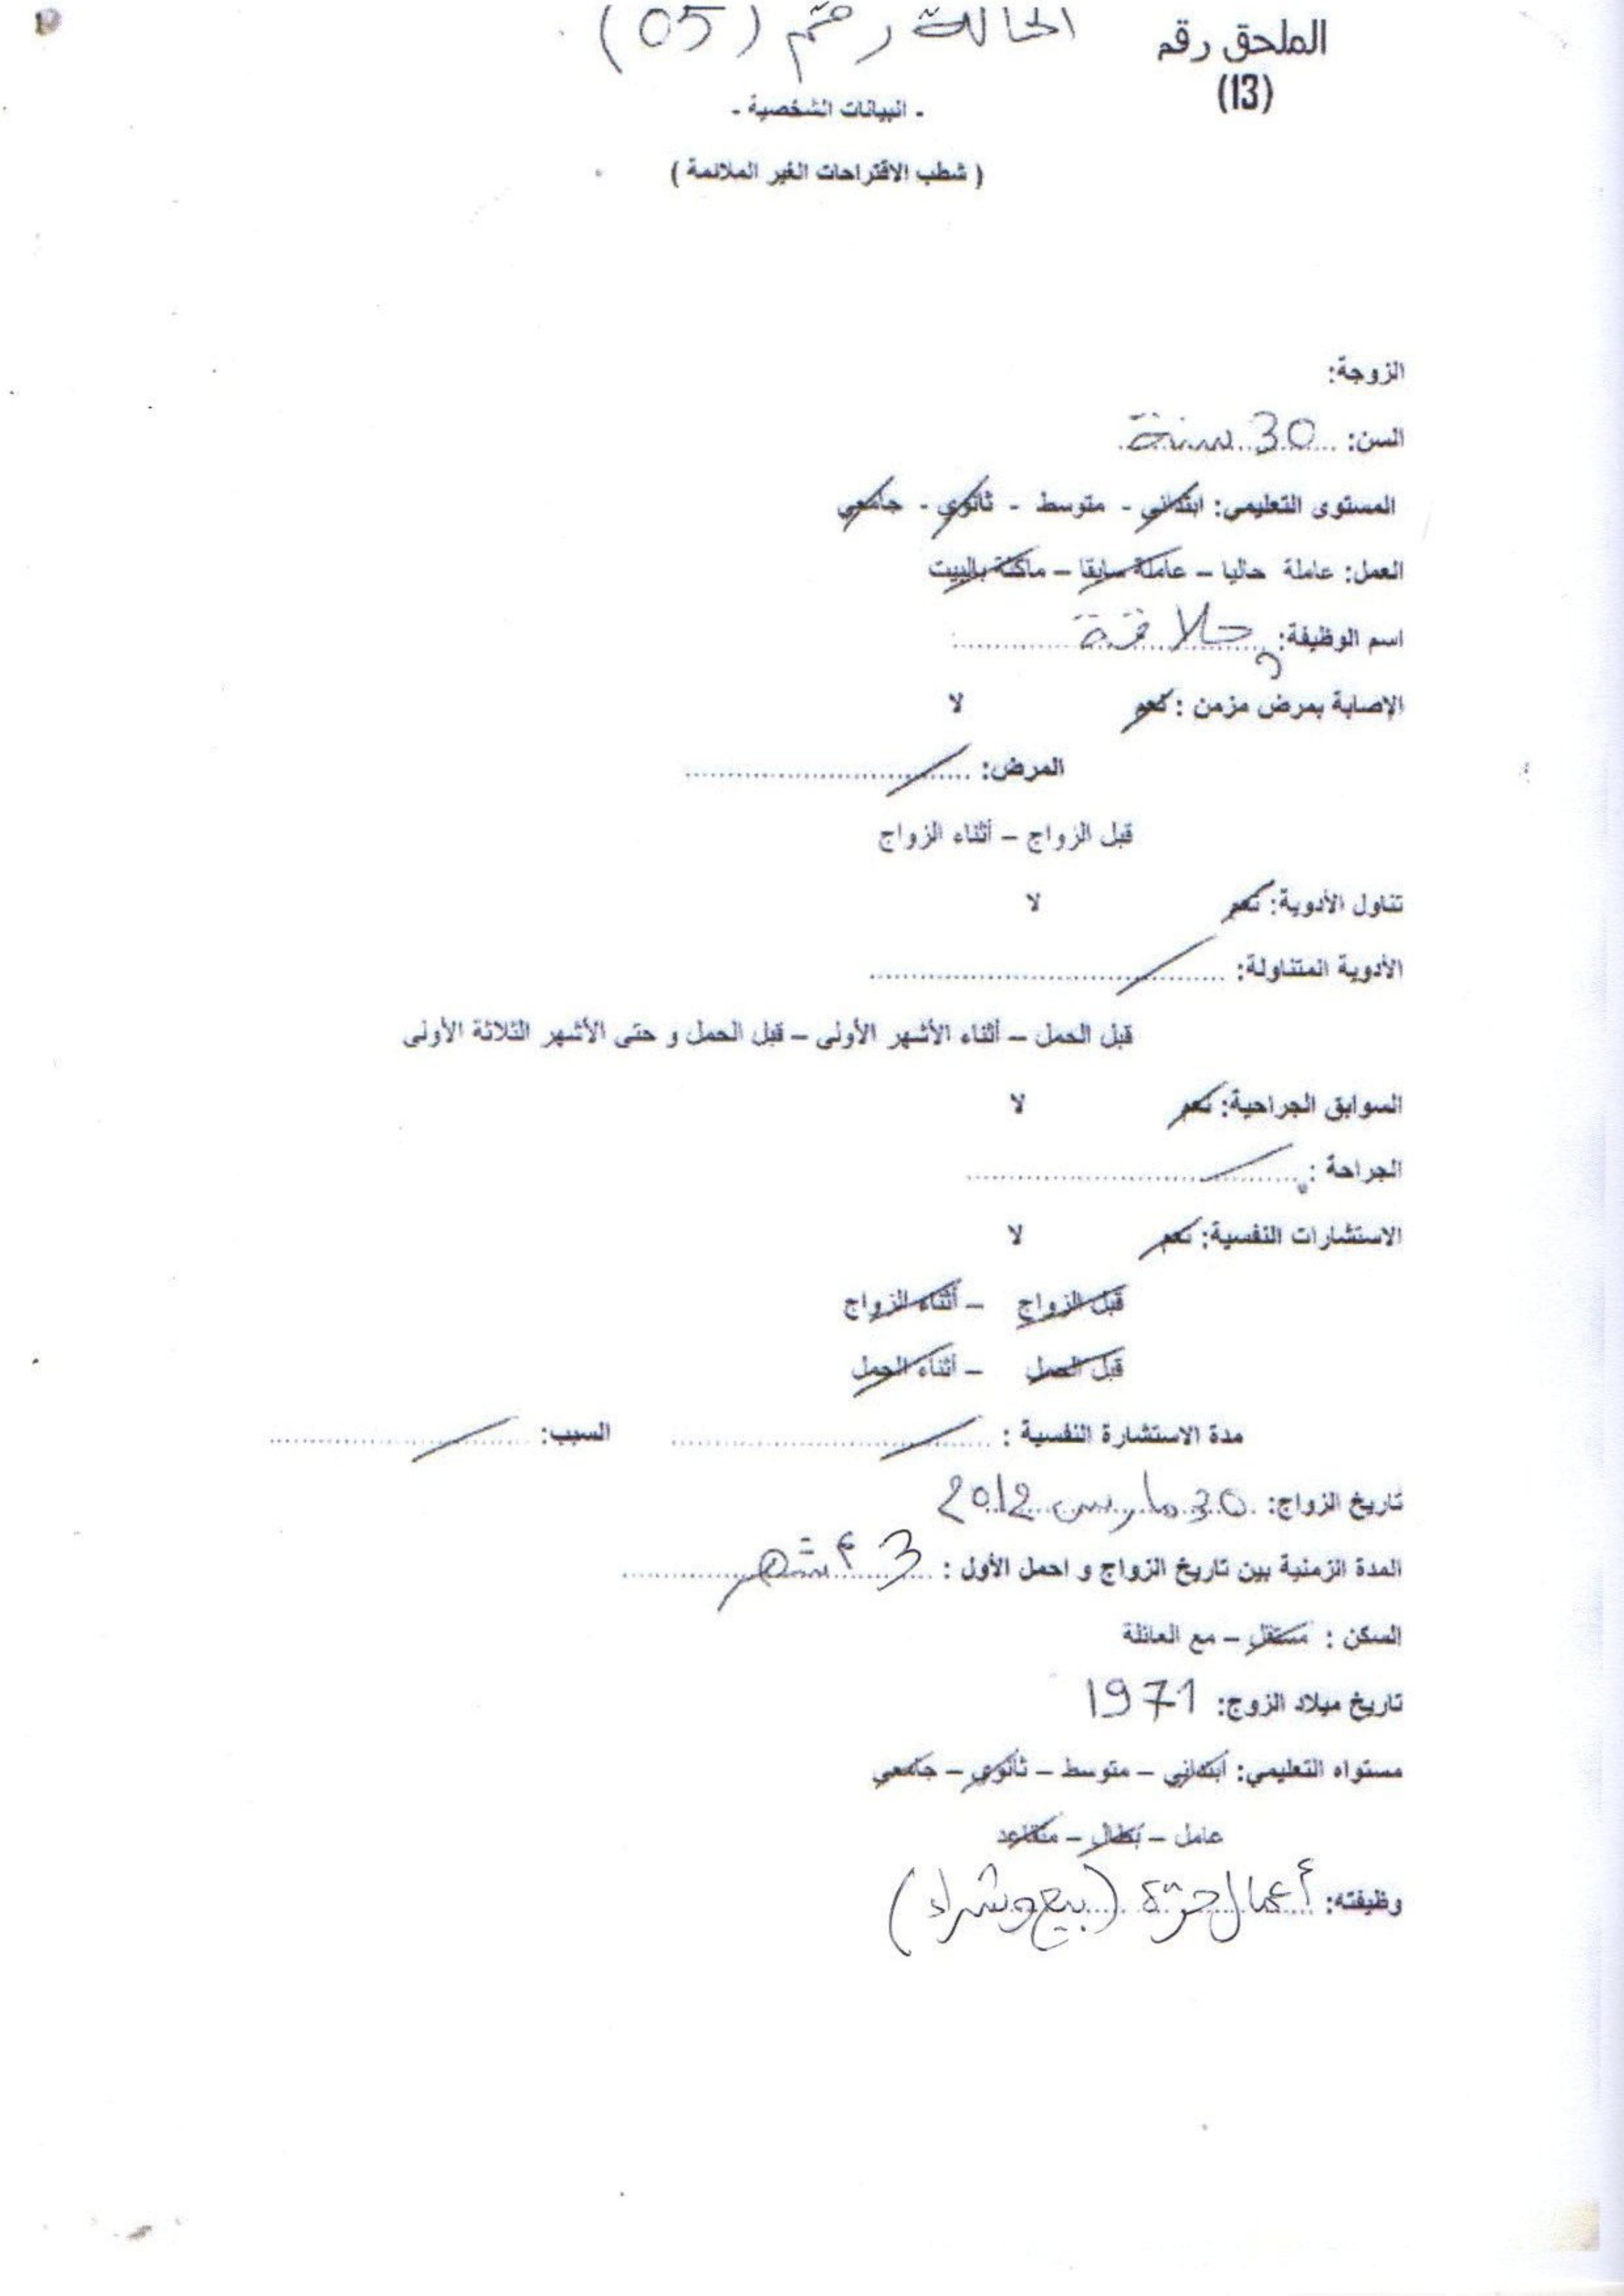 الملحق رقم
(13)
الحالة رقم (05)
- البيانات الشخصية -
( شطب الاقتراحات الغير الملائمة )
الزوجة:
السن: 30 سنة
المستوى التعليمي: ابتدائي - متوسط - ثانوي - جامعي
العمل: عاملة حاليا – عاملة سابقا – ماكثة بالبيت
اسم الوظيفة: حلاقة
الإصابة بمرض مزمن : نعم لا
المرض: ........................
قبل الزواج – أثناء الزواج
تناول الأدوية: نعم لا
الأدوية المتناولة: ........................
قبل الحمل – أثناء الأشهر الأولى – قبل الحمل و حتى الأشهر الثلاثة الأولى
السوابق الجراحية: نعم لا
الجراحة : ........................
الاستشارات النفسية: نعم لا
قبل الزواج – أثناء الزواج
قبل الحمل – أثناء الحمل
مدة الاستشارة النفسية : ........................ السبب: ........................
تاريخ الزواج: 30 مارس 2012
المدة الزمنية بين تاريخ الزواج و احمل الأول : 3 أشهر
السكن : مستقل – مع العائلة
تاريخ ميلاد الزوج: 1971
مستواه التعليمي: ابتدائي – متوسط – ثانوي – جامعي
عامل – بطال – متقاعد
وظيفته: أعمال حرّة (بيع وشراء)